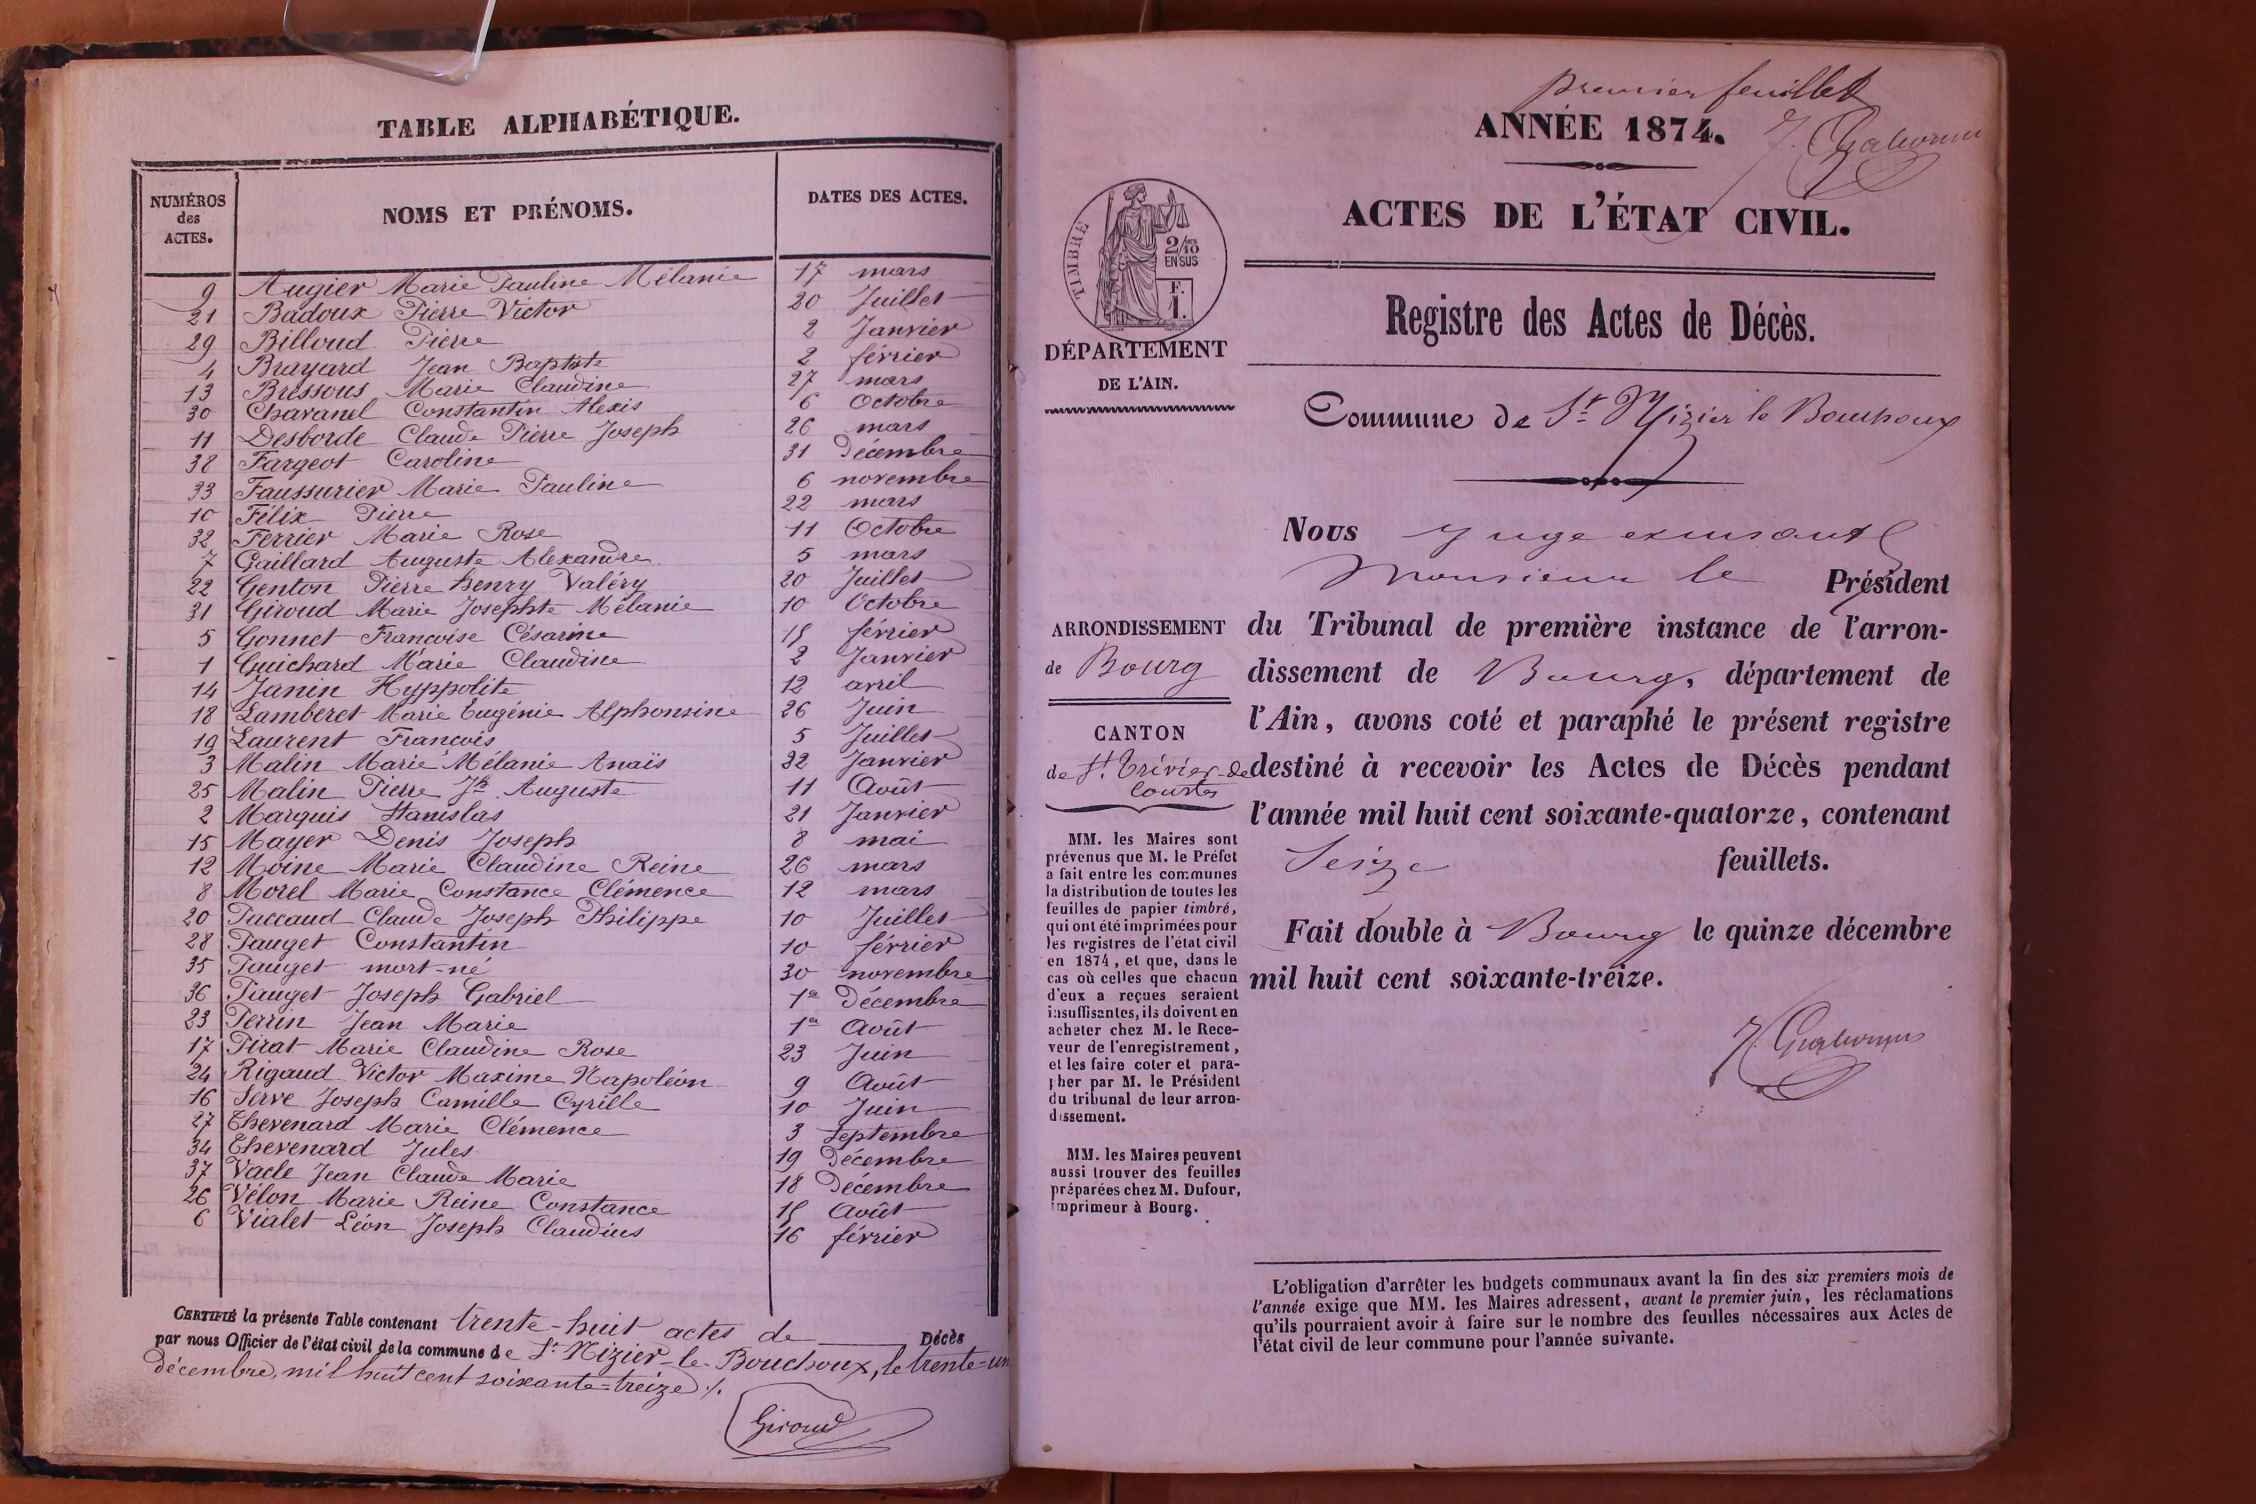 TABLE ALPHABÉTIQUE.
NUMÉROS des ACTES. NOMS ET PRÉNOMS. DATES DES ACTES.
9 Augier Marie Pauline Mélanie 17 mars
21 Badoux Pierre Victor 20 Juillet
29 Billoud Pierre 2 Janvier
4 Brayard Jean Baptiste 2 février
13 Bressous Marie Claudine 27 mars
30 Chavanel Constantin Alexis 6 Octobre
11 Desborde Claude Pierre Joseph 26 mars
38 Fargeot Caroline 31 Décembre
33 Faussurier Marie Pauline 6 novembre
10 Félix Pierre 22 mars
32 Ferrier Marie Rose 11 Octobre
7 Gaillard Auguste Alexandre 5 mars
22 Genton Pierre henry Valéry 20 Juillet
31 Giroud Marie Josephte Mélanie 10 Octobre
5 Gonnet Francoise Césarine 15 février
1 Guichard Marie Claudine 2 Janvier
14 Janin Hyppolite 12 avril
18 Lamberet Marie Eugénie Alphonsine 26 Juin
19 Laurent Francois 5 Juillet
3 Malin Marie Mélanie Anaïs 22 Janvier
25 Malin Pierre Jh Auguste 11 Août
2 Marquis Stanislas 21 Janvier
15 Mayer Denis Joseph 8 mai
12 Moine Marie Claudine Reine 26 mars
8 Morel Marie Constance Clémence 12 mars
20 Paccaud Claude Joseph Philippe 10 Juillet
28 Pauget Constantin 10 février
35 Pauget mort-né 30 novembre
36 Pauget Joseph Gabriel 1er Décembre
23 Perrin Jean Marie 1er Août
17 Pirat Marie Claudine Rose 23 Juin
24 Rigaud Victor Maxime Napoléon 9 Août
16 Serve Joseph Camille Cyrille 10 Juin
27 Thevenard Marie Clémence 3 Septembre
34 Thevenard Jules 19 Décembre
37 Vacle Jean Claude Marie 18 Décembre
26 Vélon Marie Reine Constance 15 Août
6 Vialet Léon Joseph Claudius 16 février
CERTIFIÉ la présente Table contenant trente-huit actes de Décès
par nous Officier de l'état civil de la commune de St Nizier-le-Bouchoux, le trente-un
décembre, mil huit cent soixante-treize ./.
Giroud
premier feuillet
ANNÉE 1874.
ACTES DE L'ÉTAT CIVIL.
TIMBRE
2/10
EN SUS
F.
1.
DÉPARTEMENT
DE L'AIN.
Registre des Actes de Décès.
Commune de St Nizier le Bouchoux
ARRONDISSEMENT
de Bourg
CANTON
de St. Trivier-de
Courtes
MM. les Maires sont
prévenus que M. le Préfet
a fait entre les communes
la distribution de toutes les
feuilles de papier timbré,
qui ont été imprimées pour
les registres de l'état civil
en 1874, et que, dans le
cas où celles que chacun
d'eux a reçues seraient
insuffisantes, ils doivent en
acheter chez M. le Rece-
veur de l'enregistrement,
et les faire coter et para-
pher par M. le Président
du tribunal de leur arron-
dissement.
MM. les Maires peuvent
aussi trouver des feuilles
préparées chez M. Dufour,
imprimeur à Bourg.
Nous Juge
Monsieur le Président
du Tribunal de première instance de l'arron-
dissement de Bourg, département de
l'Ain, avons coté et paraphé le présent registre
destiné à recevoir les Actes de Décès pendant
l'année mil huit cent soixante-quatorze, contenant
Seize feuillets.
Fait double à Bourg le quinze décembre
mil huit cent soixante-treize.
L'obligation d'arrêter les budgets communaux avant la fin des six premiers mois de
l'année exige que MM. les Maires adressent, avant le premier juin, les réclamations
qu'ils pourraient avoir à faire sur le nombre des feuilles nécessaires aux Actes de
l'état civil de leur commune pour l'année suivante.